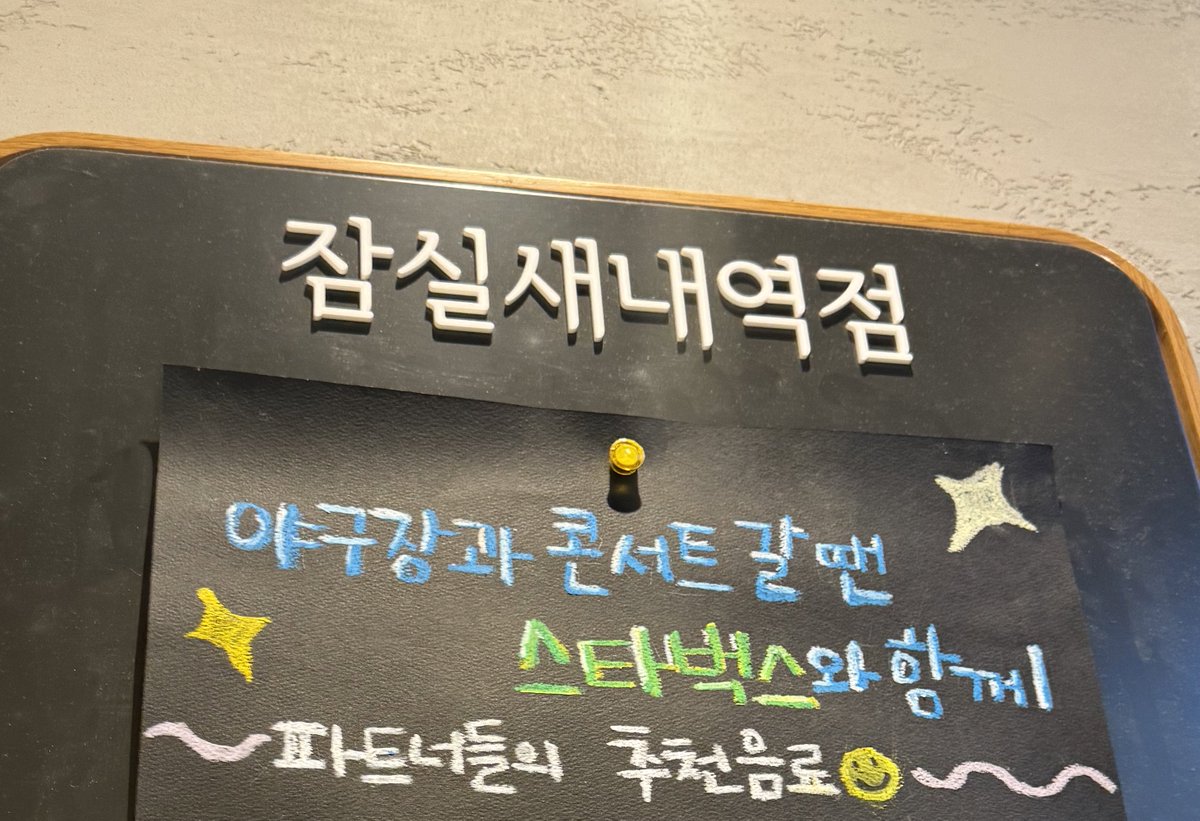 잠실새내역점
야구장과 콘서트 갈 땐
스타벅스와 함께
파트너들의 추천음료